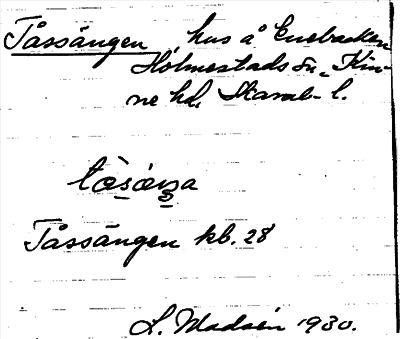 Tåssängen, hus å Enebacken
Holmestads sn, Kin-
ne hd, Skarab. l.
tɷ̀sæŋa
Tåssängen kb. 28
L. Madsén 1930.